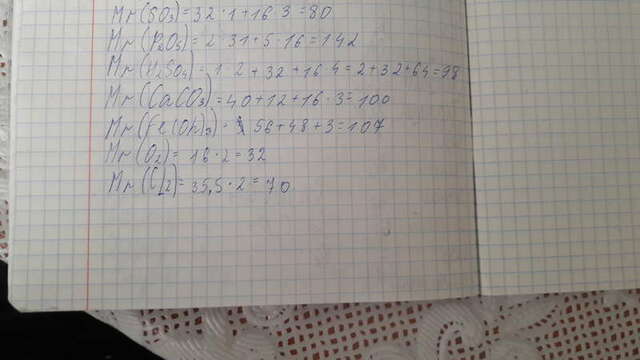 Mr(SO₃)=32·1+16·3=80
Mr(P₂O₅)=2·31+5·16=142
Mr(H₂SO₄)=1·2+32+16·4=2+32+64=98
Mr(CaCO₃)=40+12+16·3=100
Mr(Fe(Oh)₃)=56+48+3=107
Mr(O₂)=16·2=32
Mr(Cl₂)=35,5·2=70